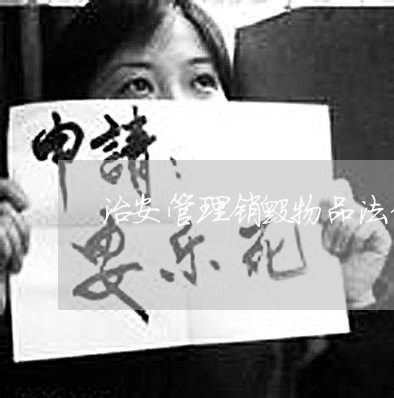 申請：
治安管理销毁物品法
安乐死